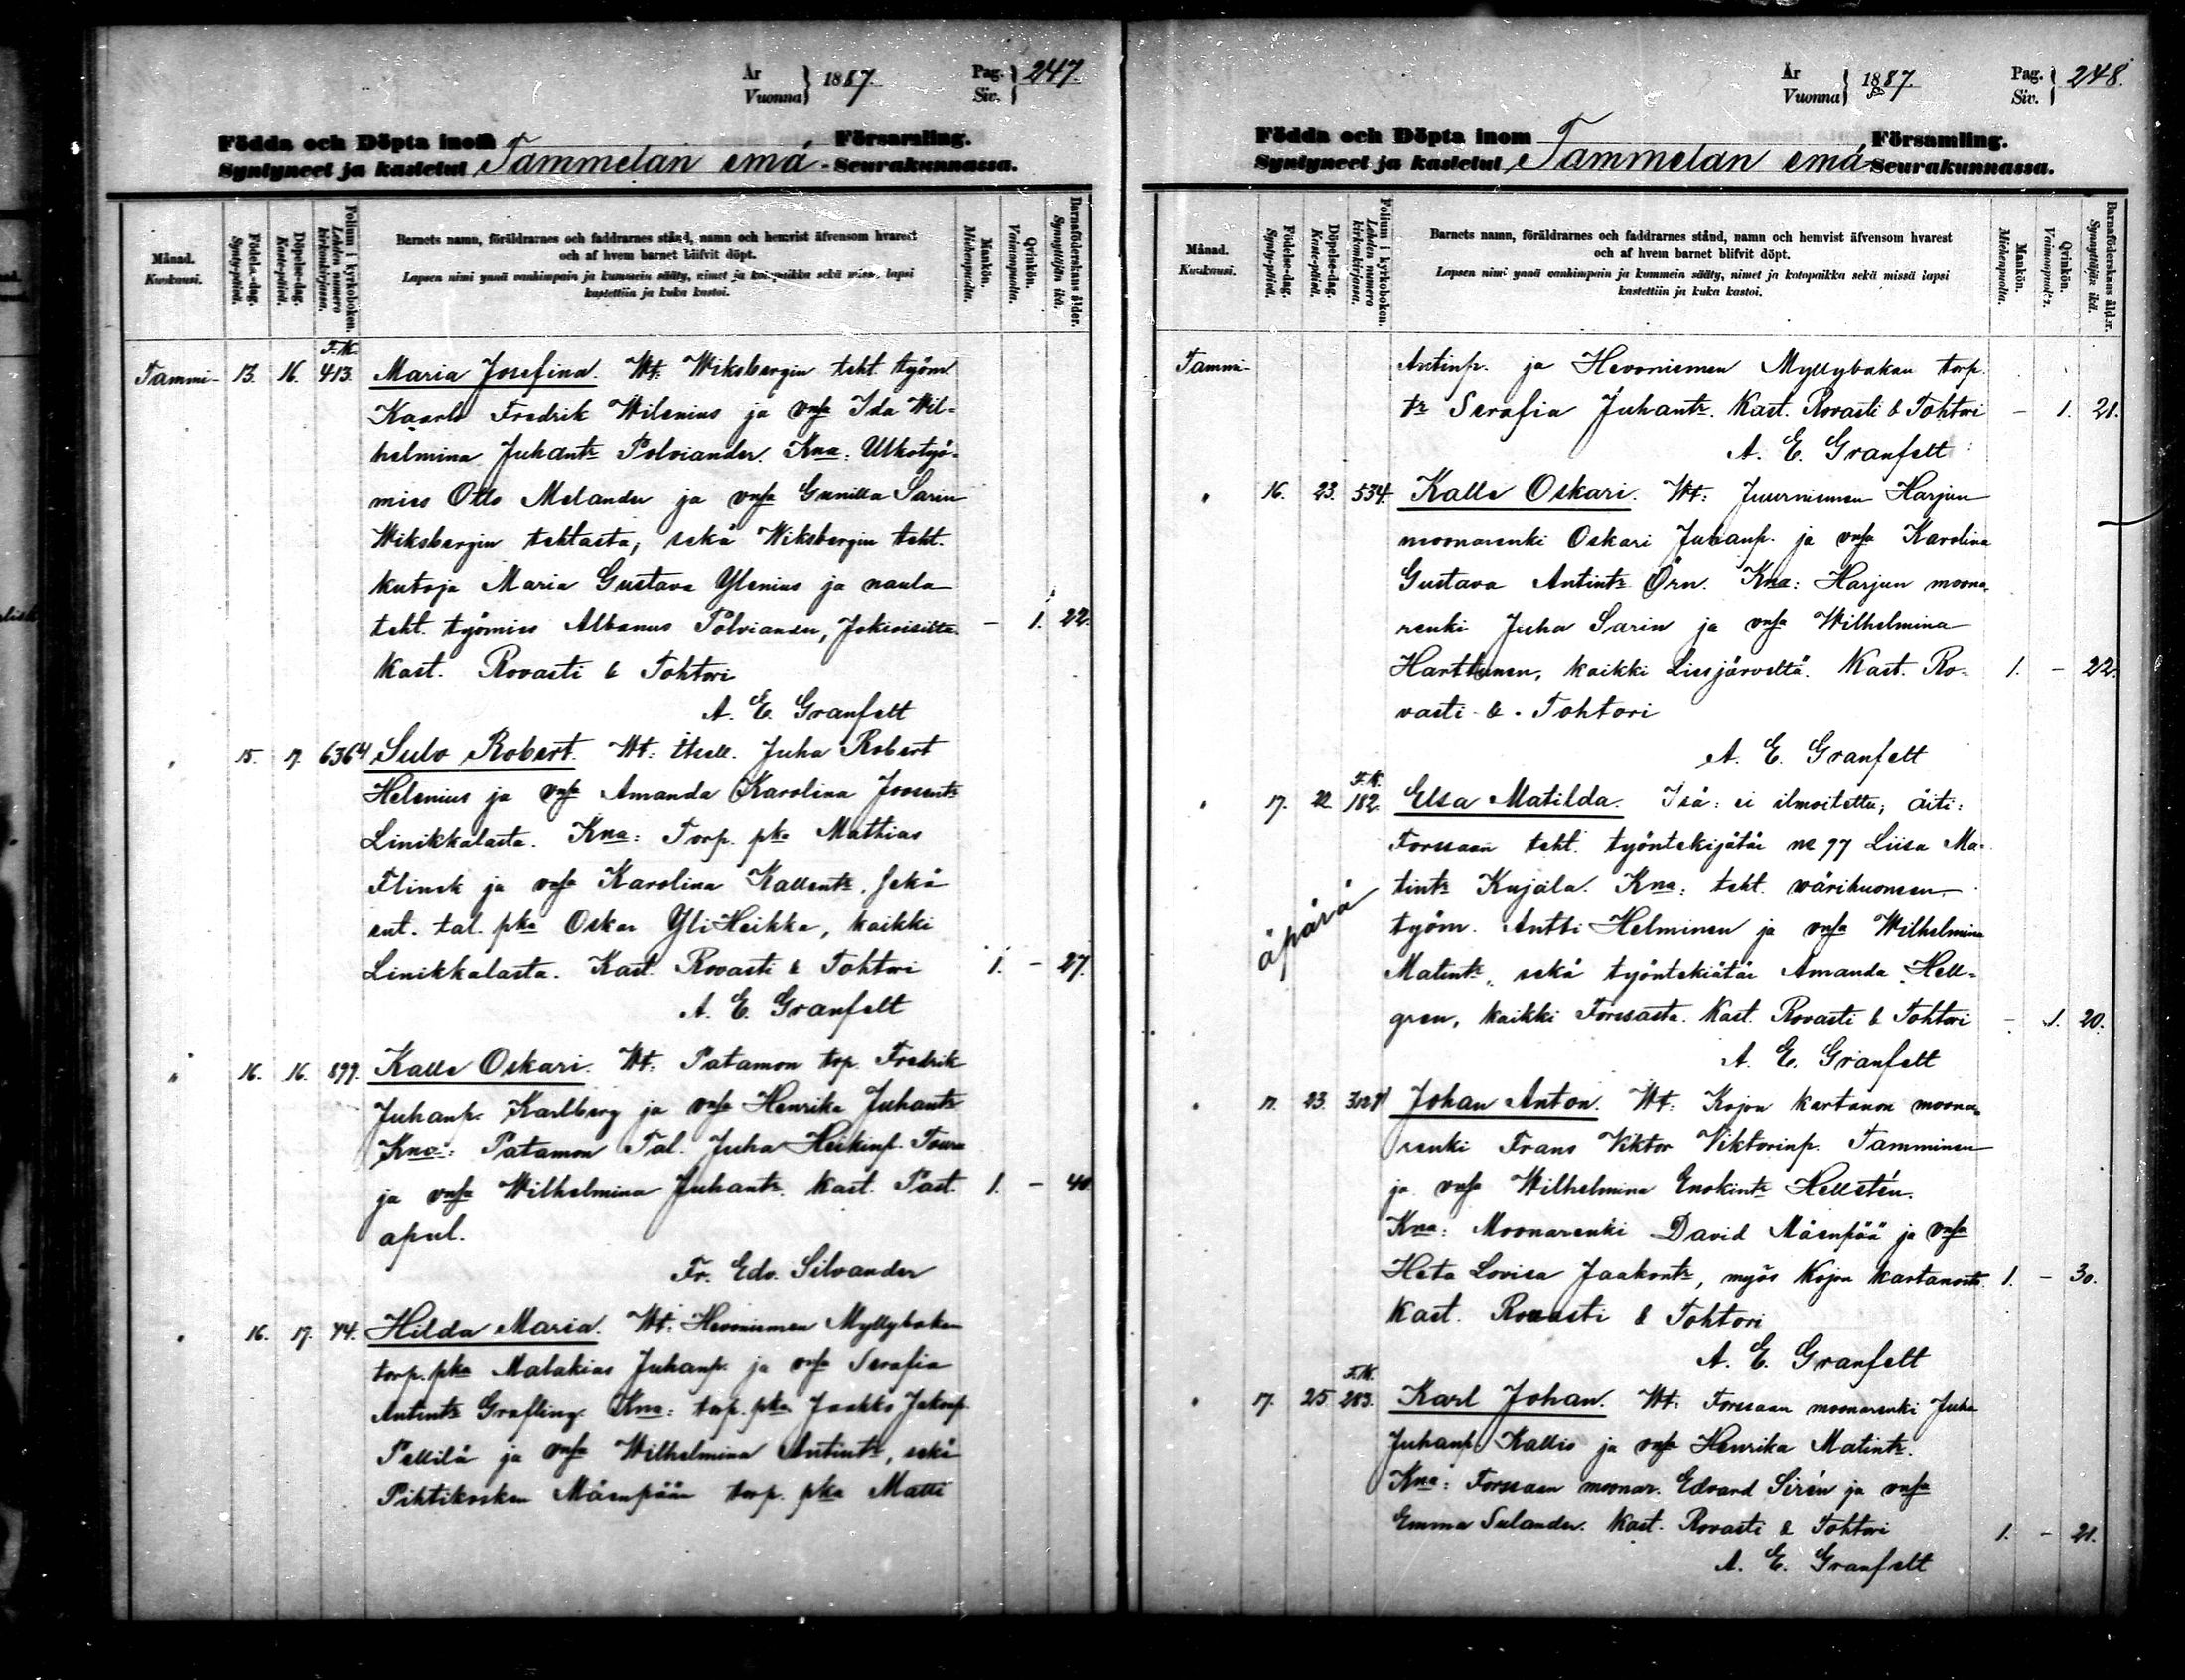 År
Vuonna } 1887.
Pag.
Siv. } 247.
Födda och Döpta inom Församling.
Syntyneet ja kastetut Tammelan emä - Seurakunnassa.
Månad.
Kuukausi.
Födelse-dag.
Synty-päivä.
Döpelse-dag.
Kaste-päivä.
Folium i kyrkoboken.
Lehden numero kirkonkirjassa.
Barnets namn, föräldrarnes och faddrarnes stånd, namn och hemvist äfvensom hvarest
och af hvem barnet blifvit döpt.
Lapsen nimi ynnä vanhimpain ja kummein sääty, nimet ja kotopaikka sekä missä lapsi
kastettiin ja kuka kastoi.
Mankön.
Miehenpuolia.
Qvinkön.
Vaimonpuolia.
Barnaföderskans ålder.
Synnyttäjän ikä.
F. K.
Tammi- 13. 16. 413. Maria Josefina. Wt: Wiksbergin teht. työm.
Kaarlo Fredrik Wilenius ja vmsa Ida Wil-
helmina Juhantr Polviander. Kna: Ulkotyö-
mies Otto Melander ja vmsa Gunilla Sarin
Wiksbergin tehtaasta, sekä Wiksbergin teht.
kutoja Maria Gustava Ylenius ja naula
teht. työmies Albanus Polviander, Jokioisilta. - 1. 22.
Kast. Rovasti & Tohtori
A. E. Granfelt
" 15. 17. 6364 Sulo Robert. Wt: itsell. Juha Robert
Helenius ja vmsa Amanda Karolina Joosentr
Linikkalasta. Kna: Torp. pka Mathias
Flinck ja vmsa Karolina Kallentr, sekä
ent. tal. pka Oskar YliHeikka, kaikki
Linikkalasta. Kast. Rovasti & Tohtori 1. - 27.
A. E. Granfelt
" 16. 16. 899. Kalle Oskari. Wt: Patamon torp. Fredrik
Juhanp. Karlberg ja vmsa Henrika Juhantr
Kna: Patamon Tal. Juha Heikinp. Toura
ja vmsa Wilhelmina Juhantr. Kast. Past. 1. - 40.
apul.
Fr. Edv. Silvander
" 16. 17. 74. Hilda Maria. Wt: Hevoniemen Myllybakan
torp. pka Malakias Juhanp. ja vmsa Serafia
Antintr Grafling. Kna: torp. pka Jaakko Jakonp.
Pellilä ja vmsa Wilhelmina Antintr, sekä
Pihtikosken Mäenpään torp. pka Matti
År
Vuonna } 1887.
Pag.
Siv. } 248.
Födda och Döpta inom Församling.
Syntyneet ja kastetut Tammelan emä Seurakunnassa.
Månad.
Kuukausi.
Födelse-dag.
Synty-päivä.
Döpelse-dag.
Kaste-päivä.
Folium i kyrkoboken.
Lehden numero kirkonkirjassa.
Barnets namn, föräldrarnes och faddrarnes stånd, namn och hemvist äfvensom hvarest
och af hvem barnet blifvit döpt.
Lapsen nimi ynnä vanhimpain ja kummein sääty, nimet ja kotopaikka sekä missä lapsi
kastettiin ja kuka kastoi.
Mankön.
Miehenpuolia.
Qvinkön.
Vaimonpuolia.
Barnaföderskans ålder.
Synnyttäjän ikä.
Tammi- Antinp. ja Hevoniemen Myllybakan torp.
tr Serafia Juhantr. Kast. Rovasti & Tohtori - 1. 21.
A. E. Granfelt
" 16. 23. 534. Kalle Oskari. Wt: Juurniemen Harjun
moonarenki Oskari Juhanp. ja vmsa Karolina
Gustava Antintr Örn. Kna: Harjun moona-
renki Juha Sarin ja vmsa Wilhelmina
Harttunen, kaikki Liesjärveltä. Kast. Ro- 1. - 22.
vasti & Tohtori
A. E. Granfelt
F. K.
" 17. 22. 182. Elsa Matilda. Isä: ei ilmoitettu; äiti:
Forssan teht. työntekijätär no 97 Liisa Ma-
tintr Kujala. Kna: teht. värihuoneen
äpärä
työm. Antti Helminen ja vmsa Wilhelmina
Matintr, sekä työntekiätär Amanda Hell-
gren, kaikki Forssasta. Kast. Rovasti & Tohtori - 1. 20.
A. E. Granfelt
" 17. 23. Johan Anton. Wt: Kojon kartanon moona-
renki Frans Viktor Viktorinp. Tamminen
ja vmsa Wilhelmina Enokintr Hellstén.
Kna: Moonarenki David Mäenpää ja vmsa
Heta Lovisa Jaakontr, myös Kojon kartanosta. 1. - 30.
Kast. Rovasti & Tohtori
A. E. Granfelt
F. K.
" 17. 25. 283. Karl Johan. Wt: Forssan moonarenki Juha
Juhanp. Kallio ja vmsa Henrika Matintr.
Kna: Forssan moonar. Edvard Sirén ja vmsa
Emma Sulander. Kast. Rovasti & Tohtori 1. - 21.
A. E. Granfelt